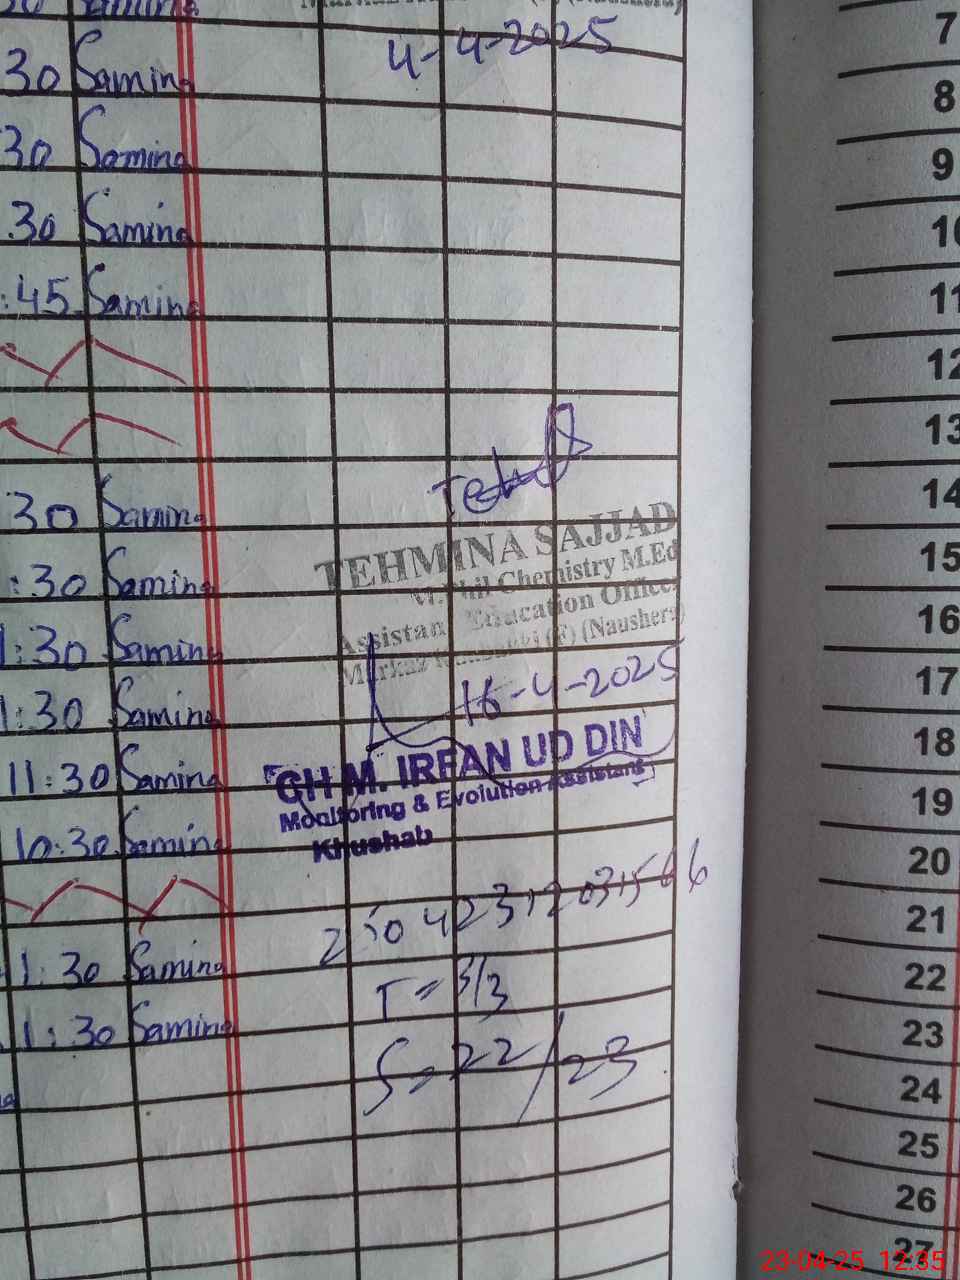 30 Samina
4-4-2025
30 Samina
30 Samina
.30 Samina
:45 Samina
30 Samina
TEHMINA SAJJAD
M.Phil Chemistry M.Ed
:30 Samina
Assistant Education Officer
1:30 Samina
(F) (Naushera)
1:30 Samina
16-4-2025
11:30 Samina
GH M. IRFAN UD DIN
Monitoring & Evolution Assistant
Khushab
10:30 Samina
1:30 Samina
T = 3/3
1:30 Samina
S = 22/23
7
8
9
10
11
12
13
14
15
16
17
18
19
20
21
22
23
24
25
26
27
23-04-25 12:35